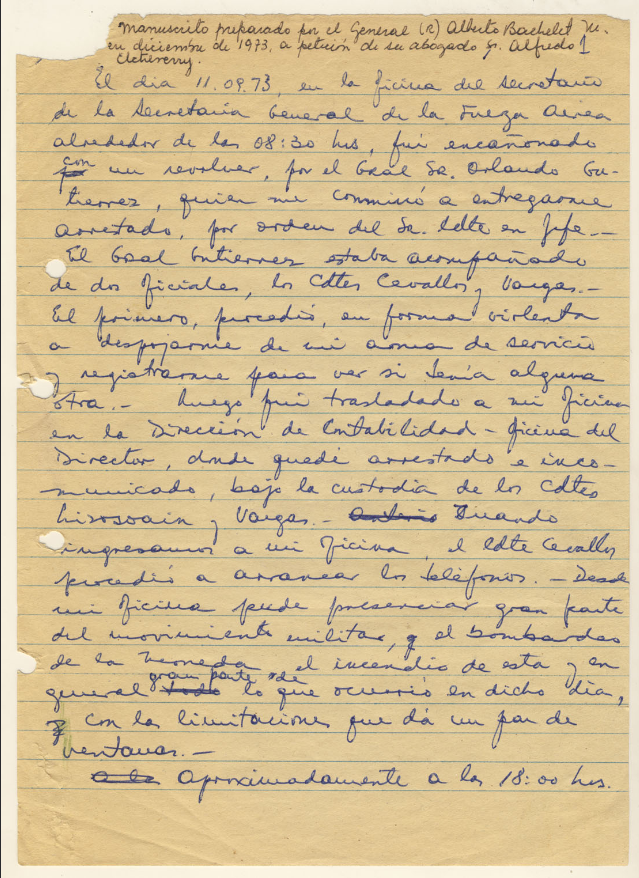 Manuscrito preparado por el General (R) Alberto Bachelet M.
en diciembre de 1973, a petición de su abogado Sr. Alfredo 1
Etcheverry.
El dia 11.09.73, en la oficina del Secretario
de la Secretaría General de la Fuerza Aerea
alrededor de las 08:30 hrs, fuí encañonado
con
un revolver, por el Gral Sr. Orlando Gu-
tierrez, quien me conminó a entregarme
arrestado, por orden del Sr. Cdte en Jefe.-
El Gral Gutierrez estaba acompañado
de dos oficiales, los Cdtes Cevallos y Vargas.-
El primero, procedió, en forma violenta
a despojarme de mi arma de servicio
y registrarme para ver si tenía alguna
otra.- Luego fuí trasladado a mi oficina
en la Dirección de Contabilidad - oficina del
Director, donde quedé arrestado e inco-
municado, bajo la custodia de los Cdtes
y Vargas.- Cuando
ingresamos a mi oficina, el Cdte Cevallos
procedió a arrancar los teléfonos.- Desde
mi oficina pude presenciar gran parte
del movimiento militar, y el bombardeo
de la Moneda, el incendio de esta y en
gran parte de
general todo lo que ocurrió en dicho dia,
con las limitaciones que dá un par de
ventanas.-
a las Aproximadamente a las 18:00 hrs.